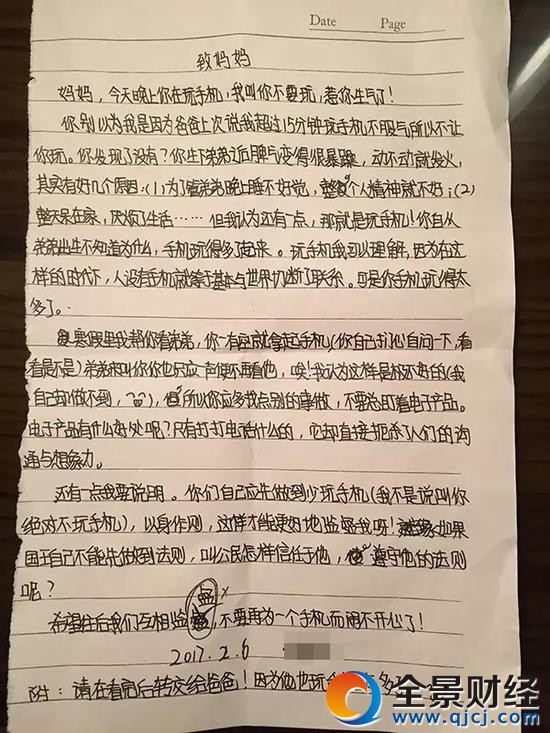 Date Page
致妈妈
妈妈，今天晚上你在玩手机，我叫你不要玩，惹你生气了！
你别以为我是因为爸爸上次说我超过15分钟玩手机不服气所以不让
你玩。你发现了没有？你生下弟弟近脾气变得很暴躁，动不动就发火，
其实有好几个原因：(1)为了管弟弟晚上睡不好觉，整个人精神就不好；(2)
整天呆在家，厌烦了生活……但我认为还有一点，那就是玩手机！你自从
弟弟出生不知道为什么，手机玩得多了起来。玩手机我可以理解，因为在这
样的时代下，人没有手机就等于基本与世界切断了联系。可是你手机玩得太
多了。
寒假里我帮你看弟弟，你一有空就拿起手机(你自己扪心自问一下，看
看是不是)弟弟来叫你你也只应一声便不再看他，唉！我认为这样是极不好的(我
自己却做不到，)，所以你应多找点别的事做，不要总盯着电子产品。
电子产品有什么好处呢？只有打打电话什么的，它却直接扼杀了人们的沟
通与想象力。
还有一点我要说明。你们自己应先做到少玩手机(我不是说叫你
绝对不玩手机)，以身作则，这样才能更好地监督我呀！如果
国王自己不能先做到法则，叫公民怎样信任他，遵守他的法则
呢？
希望往后我们互相监督，不要再为一个手机而闹不开心了！
2017.2.6
附：请在看完后转交给爸爸！因为他也玩手机
全景财经
www.qjcj.com